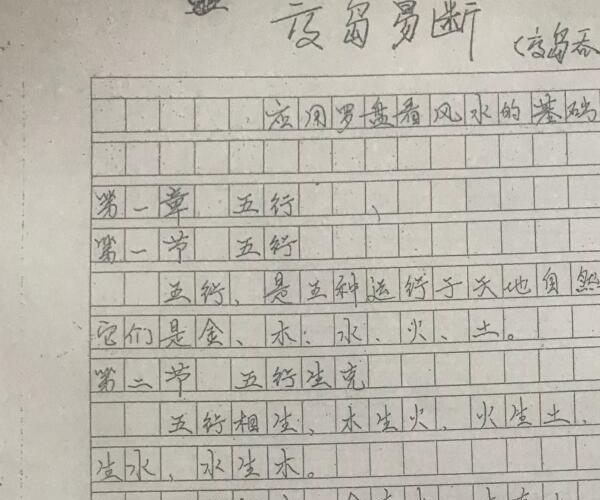 岛易断
应用罗盘看风水的基础
第一章 五行
第一节 五行
五行、是五种运行于天地自然
它们是金、木、水、火、土。
第二节 五行生克
五行相生、木生火、火生土、
生水、水生木。